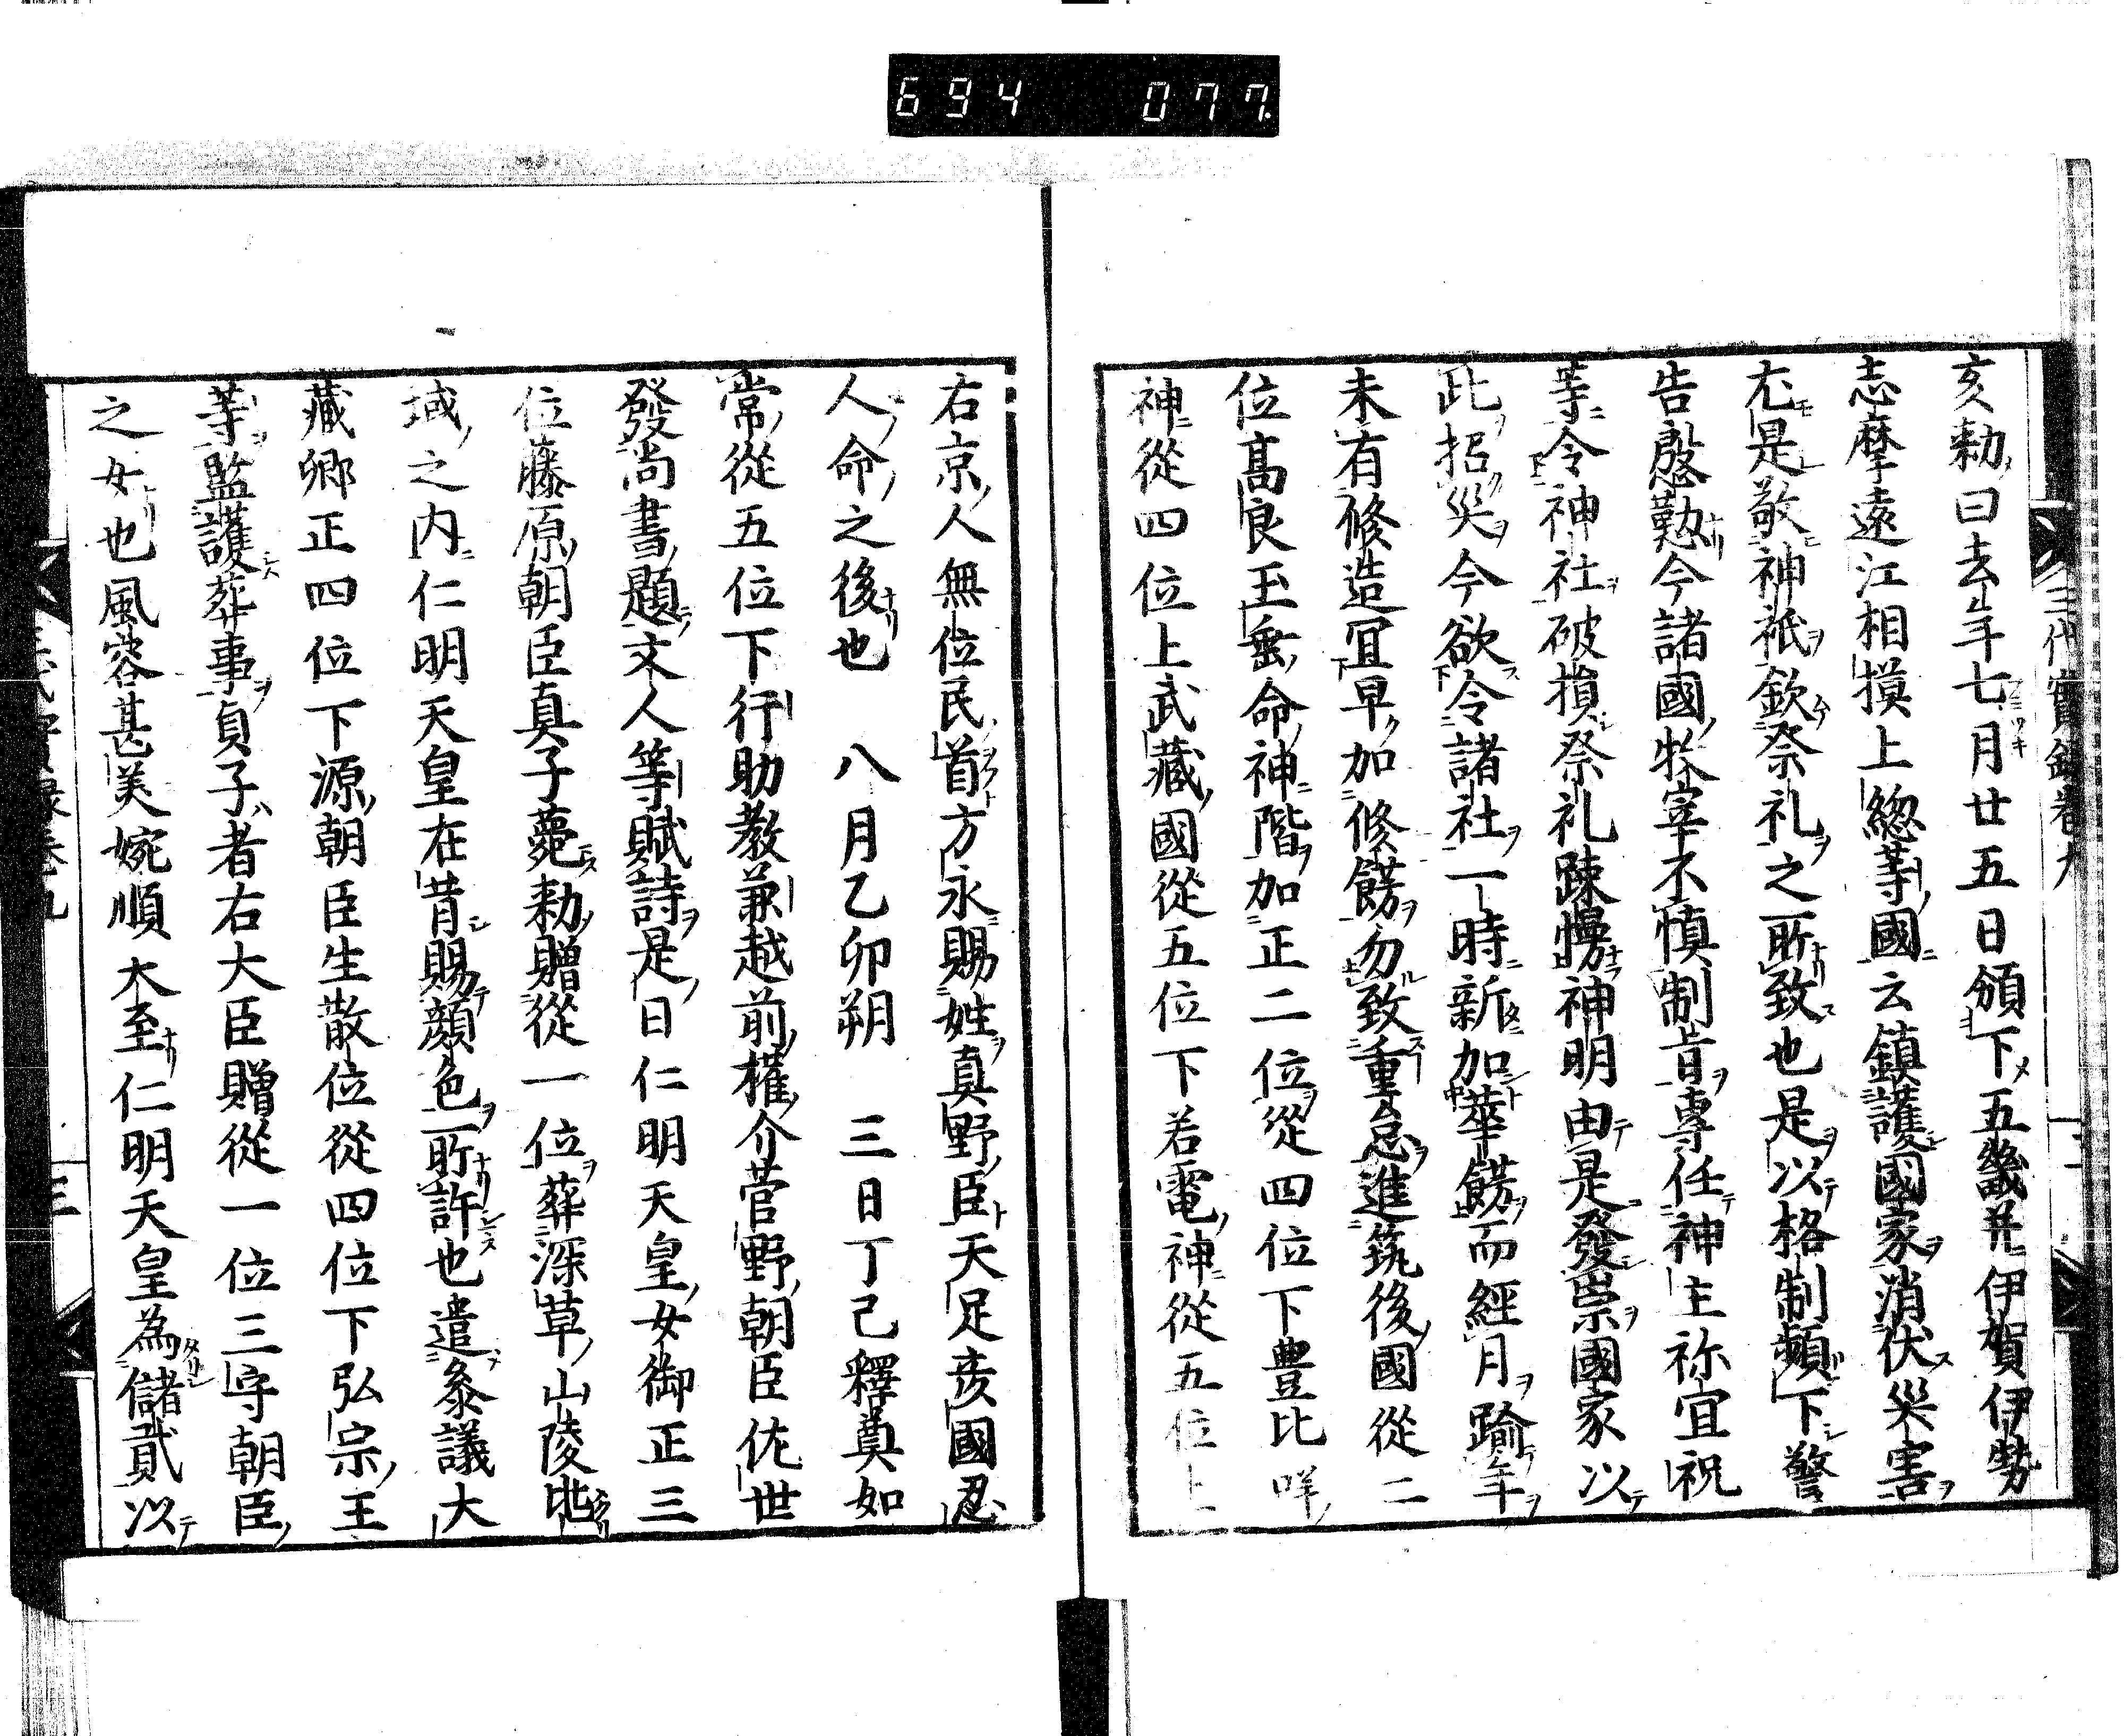 694 077
三代實録卷九
亥勅曰去年七月廿五日頒下五畿并伊賀伊勢
志摩遠江相摸上緫等國云鎮護國家消伏災害
尤是敬神祇欽祭礼之所致也是以格制頻下警
告慇懃今諸國牧宰不慎制旨專任神主祢宜祝
等令神社破損祭礼踈慢神明由是發崇國家以
此招災今欲令諸社一時新加華餝而經月踰年
未有修造冝早加修餝勿致重怠進筑後國從二
位髙良玉垂命神階加正二位從四位下豊比咩
神從四位上武藏國從五位下若電神從五位上
右京人無位民首方永賜姓真野臣天足彦國忍
人命之後也　八月乙卯朔　三日丁己釋奠如
常從五位下行助教兼越前權介菅野朝臣佐世
發尚書題文人等賦詩是日仁明天皇女御正三
位藤原朝臣真子薨勅贈從一位葬深草山陵兆
域之内仁明天皇在昔賜顔色所許也遣叅議大
藏卿正四位下源朝臣生散位從四位下弘宗王
等監護葬事貞子者右大臣贈從一位三守朝臣
之女也風容甚美婉順大至仁明天皇為儲貳以